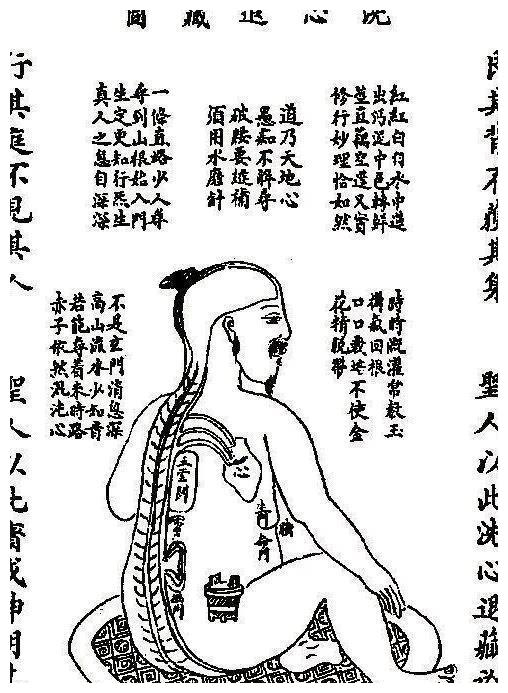 洗心退藏圖
艮其背不獲其身
聖人以此洗心退藏於
紅紅白白水中蓮
出污泥中色轉鮮
莖直藕空蓬又實
修行妙理恰如然
道乃天地心
愚痴不解尋
破腰要 補
須用水磨針
一條直路少人尋
尋到山根始入門
坐定更知行炁主
真人之息自深深
時時溉灌常教玉
樹氣回根
日日栽培不使金
花精脫蒂
不是玄門消息深
高山流水少知音
若能尋着來時路
赤子依然混沌心
行其庭不見其人
聖人以此齋戒神明其
心
臍